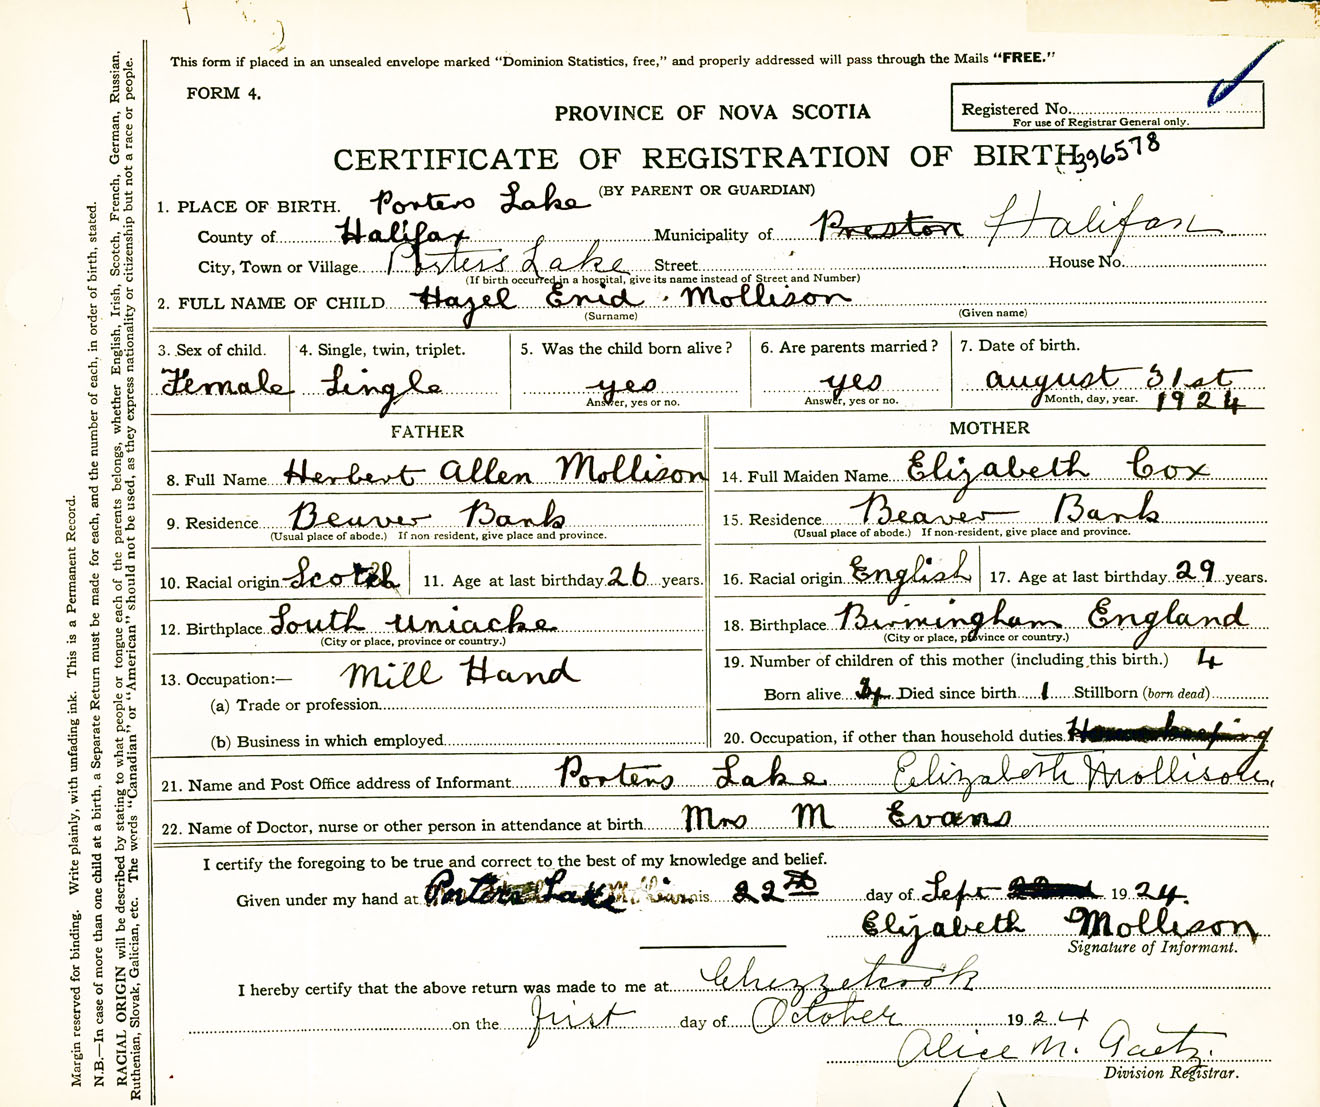 This form if placed in an unsealed envelope marked "Dominion Statistics, free," and properly addressed will pass through the Mails "FREE."
FORM 4.
PROVINCE OF NOVA SCOTIA
Registered No.
For use of Registrar General only.
CERTIFICATE OF REGISTRATION OF BIRTH
396578
(BY PARENT OR GUARDIAN)
1. PLACE OF BIRTH. Porters Lake
County of Halifax Municipality of Preston Halifax
City, Town or Village Porters Lake Street House No.
(If birth occurred in a hospital, give its name instead of Street and Number)
2. FULL NAME OF CHILD Hazel Enid Mollison
(Surname) (Given name)
3. Sex of child. 4. Single, twin, triplet. 5. Was the child born alive? 6. Are parents married? 7. Date of birth.
Female Single yes yes august 31st
Answer, yes or no. Answer, yes or no. Month, day, year. 1924
FATHER MOTHER
8. Full Name Herbert Allen Mollison 14. Full Maiden Name Elizabeth Cox
9. Residence Beaver Bank 15. Residence Beaver Bank
(Usual place of abode.) If non resident, give place and province. (Usual place of abode.) If non-resident, give place and province.
10. Racial origin Scotch 11. Age at last birthday 26 years. 16. Racial origin English 17. Age at last birthday 29 years.
12. Birthplace South Uniacke 18. Birthplace Birmingham England
(City or place, province or country.) (City or place, province or country.)
13. Occupation:— Mill Hand 19. Number of children of this mother (including this birth.) 4
(a) Trade or profession Born alive Died since birth 1 Stillborn (born dead)
(b) Business in which employed 20. Occupation, if other than household duties. Housekeeping
21. Name and Post Office address of Informant Porters Lake Elizabeth Mollison,
22. Name of Doctor, nurse or other person in attendance at birth Mrs M Evans
I certify the foregoing to be true and correct to the best of my knowledge and belief.
Given under my hand at Porters Lake this 22nd day of Sept 1924.
Elizabeth Mollison
Signature of Informant.
I hereby certify that the above return was made to me at Chezzetcook
on the first day of October 1924
Alice M. Gaetz.
Division Registrar.
Margin reserved for binding. Write plainly, with unfading ink. This is a Permanent Record.
N.B.—In case of more than one child at a birth, a Separate Return must be made for each, and the number of each, in order of birth, stated.
RACIAL ORIGIN will be described by stating to what people or tongue each of the parents belongs, whether English, Irish, Scotch, French, German, Russian,
Ruthenian, Slovak, Galician, etc. The words "Canadian" or "American" should not be used, as they express nationality or citizenship but not a race or people.